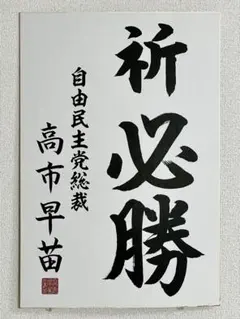 祈必勝
自由民主党総裁
高市早苗